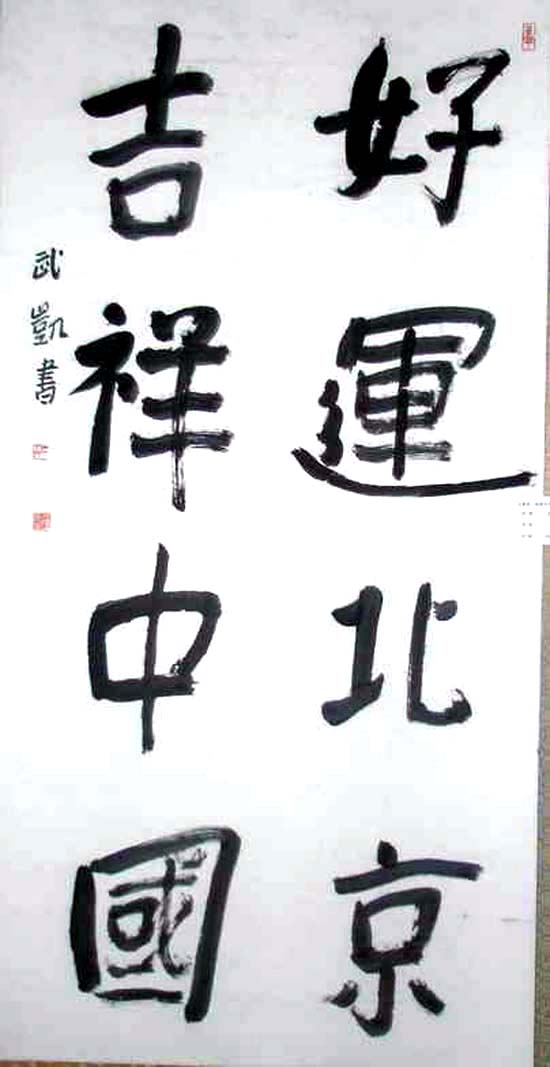 好運北京
吉祥中國
武凱書